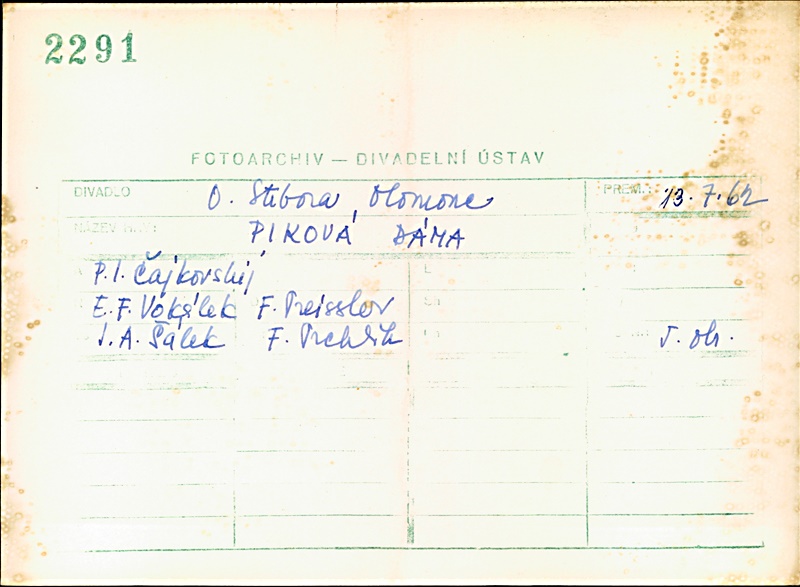 2291
FOTOARCHIV — DIVADELNÍ ÚSTAV
DIVADLO O. Stibora, Olomouc PREM.: 13.7.62
NÁZEV HRY: PIKOVÁ DÁMA
P. I. Čajkovskij
E. F. Vokálek F. Preissler
J. A. Šálek F. 5. obr.